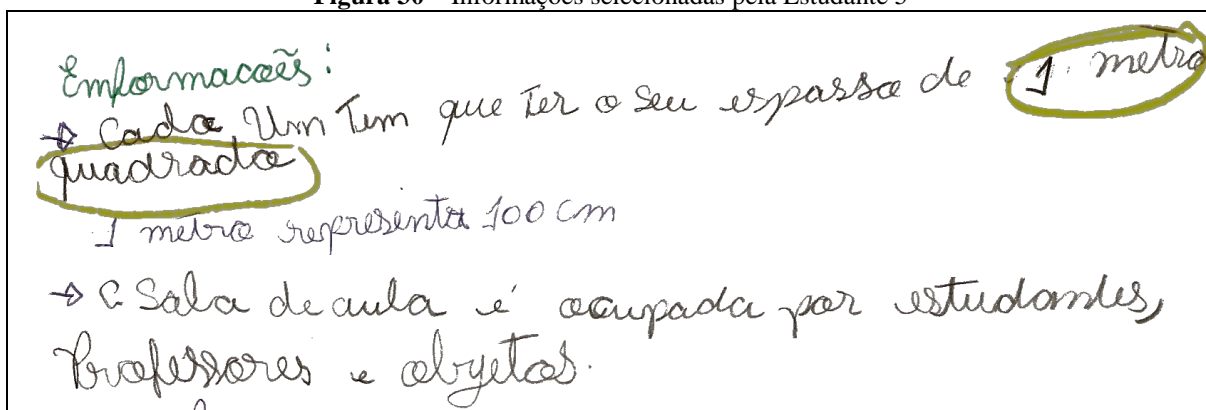 Figura 30 – Informações selecionadas pela Estudante 5
Emformacoẽs:
→ Cada Um Tem que Ter o seu espasso de 1 metro
quadrado
1 metro representa 100 cm
→ a Sala de aula é ocupada por estudantes,
Professores e objetos.